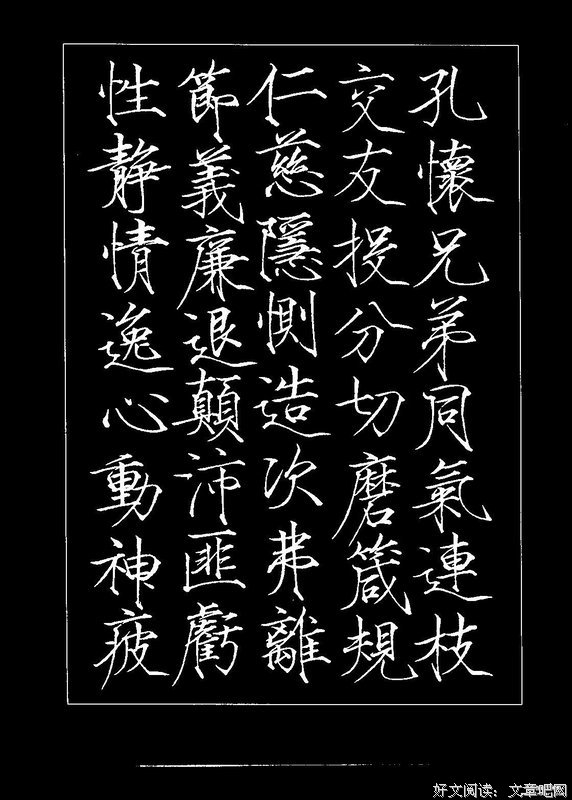 孔懷兄弟同氣連枝
交友投分切磨箴規
仁慈隱惻造次弗離
節義廉退顛沛匪虧
性靜情逸心動神疲
好文阅读：文章吧网